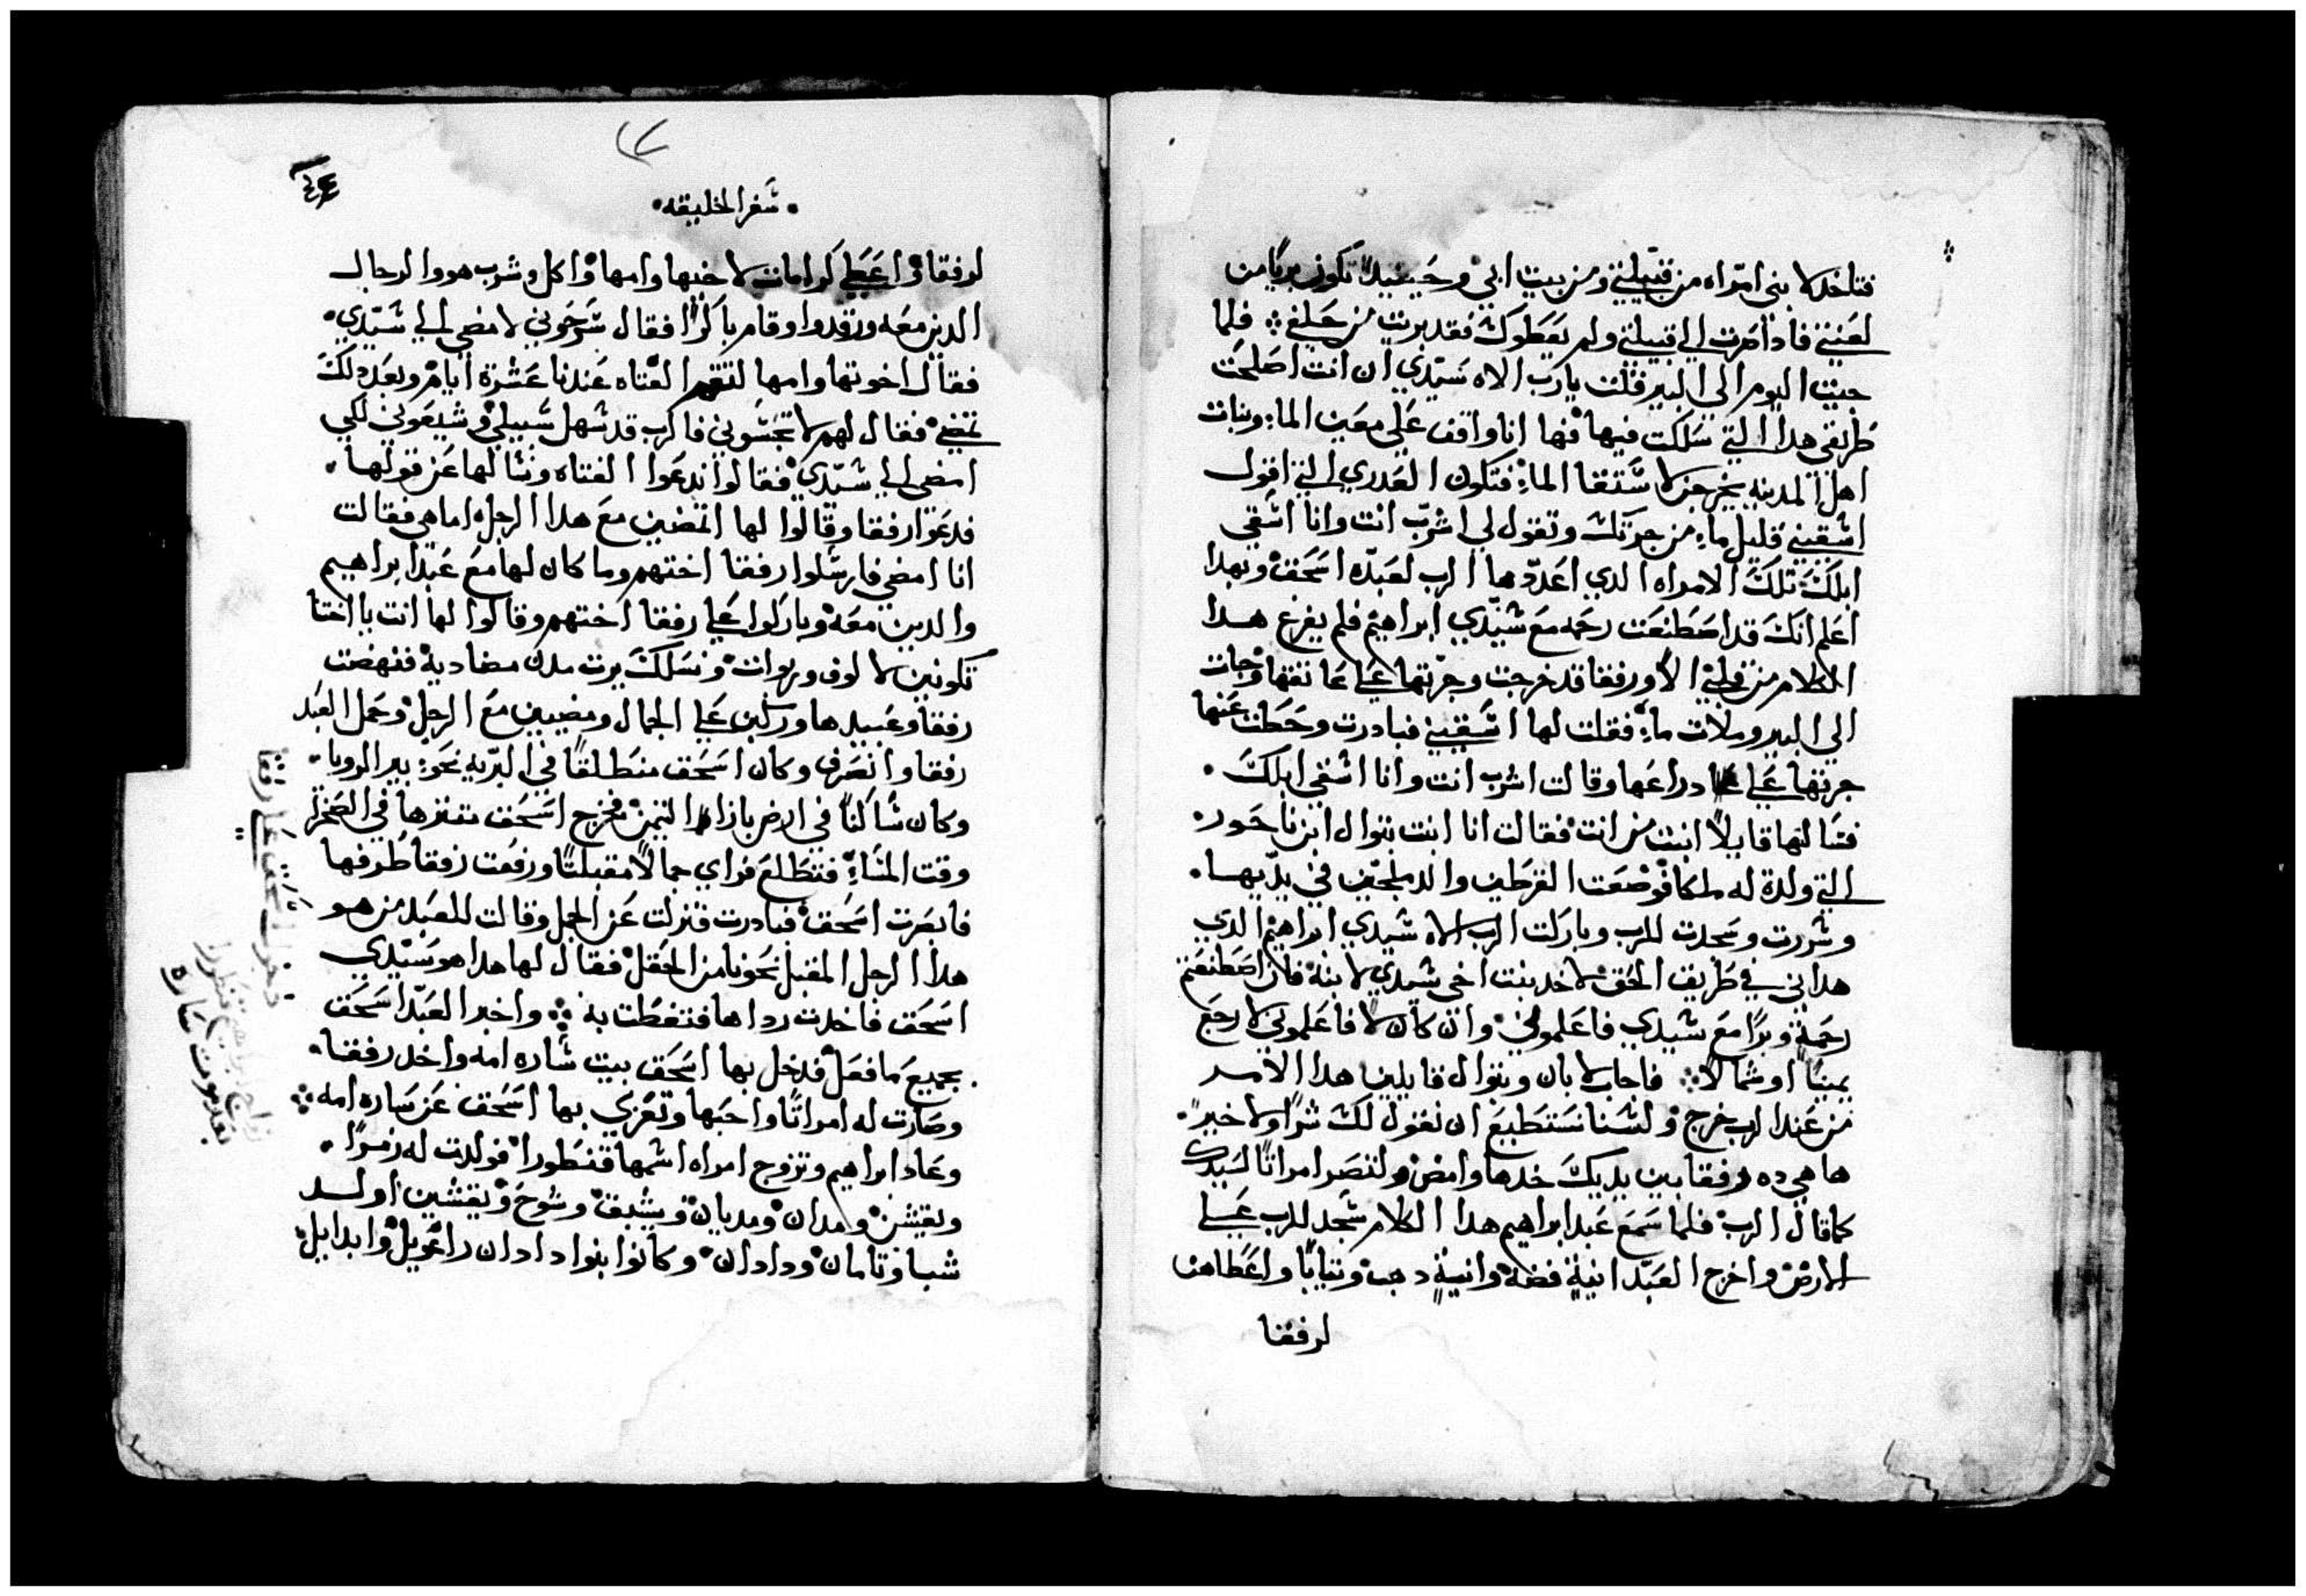 فتاخد لابنى امراه من قبيلتي ومن بيت ابي وحينيدٍ تكون بريًا من
لعنتي فادا صرت الي قبيلتي ولم يعطوك فقد بريت من حلفي ۞ فلما
جيت اليوم الي البير قلت يا رب الاه سيدي ان انت اصلحت
طريقى هدا التي سلكت فيها فها انا واقف علي معين الماء وبنات
اهل المدينه يخرجن لاستقا الماء فتكون العدري التي اقول
اشقيني قليل ماء من جرتك وتقول لي اشرب انت وانا اشقي
ابلك تلك الامراه الدي اعدّها الرب لعبده اسحق وبهدا
اعلم انك قد اصطنعت رحمه مع شيدي ابراهيم فلم يفرغ هدا
الكلام من قلبي الا ورفقا قد خرجت وجرتها علي عاتقها وجات
الي البير وملات ماء فقلت لها اشقيني فبادرت وحطت عنها
جرتها علي دراعها وقالت اشرب انت وانا اشقي ابلك
فسالتها قايلاً ابنت من انت فقالت انا ابنت بتوال ابن ناحور
التي ولدة له ملكا فوضعت القرطين والدملجين في يديها
وشررت وسجدت للرب وباركت الرب الاه شيدي ابراهيم الدي
هداني في طريق الحق لاخد بنت اخى شيدي لابنه فان اصطنعتم
رحمة وبرًا مع شيدي فاعلموني وان كان لا فاعلموني لارجع
يمينًا او شمالاً ۞ فاجاب لابان وبتوال قايلين هدا الامر
من عند الرب خرج ولشنا نستطيع ان نقول لك شرًا ولا خيرً
ها هي ده رفقا بين يديك خدها وامض ولتصر امراتًا لسيدك
كما قال الرب فلما سمع عبد ابراهيم هدا الكلام سجد للرب علي
الارض واخرج العبد انية فضة وانية دهب وتيابًا واعطاهن
لرفقا
شفر الخليقه
لرفقا واعطي كرامات لاخيها وامها واكل وشرب هو والرجال
الدين معه ورقدوا وقام باكرًا فقال شرحوني لامضى الي شيدي
فقال اخوتها وامها لتقم الفتاه عندنا عشرة ايام وبعد دلك
تمضي فقال لهم لا تحبشوني فاكرب قد شهل سبيلي وشيعوني لكي
امضى الي شيدي فقالوا ندعوا الفتاه ونسالها عن قولها
فدعوا رفقا وقالوا لها اتمضين مع هدا الرجل اما هي فقالت
انا امضي فارشلوا رفقا اختهم وما كان لها مع عبد ابراهيم
والدين معه وباركوا علي رفقا اختهم وقالوا لها انت يا اختا
تكونين لالوف وربوات ونسلك يرت مدن مضاديه فنهضت
رفقا وعبيدها وركبن علي الجمال ومضيين مع الرجل وحمل العبد
رفقا وانصرف وكان اسحق منطلقًا في البريه نحو بير الرويا
وكان شاكنًا في الارض بازاء التيمن فخرج اسحق متنزهًا في الصحرا
وقت المشاء فتطلع فراي جمالاً مقبلتًا ورفعت رفقا طرفها
فابصرت اسحق فبادرت فنزلت عن الجمل وقالت للعبد من هو
هدا الرجل المقبل نحونا من الحقل فقال لها هدا هو سيدي
اسحق فاخدت رداها فتغطت به ۞ واخبر العبد اسحق
بجميع ما فعل فدخل بها اسحق بيت شاره امه واخد رفقا
وصارت له امراتًا واحبها وتعزي بها اسحق عن ساره امه ۞
وعاد ابراهيم وتزوج امراه اشمها قنطورا فولدت له زمرا
ويقشن ومدان ومديان ويشبق وشوح ويقشين اولد
شبا وتامان ودادان وكانوا بنوا دادان راعويل وابدايل
دخول اسحق علي رفقا
زواج ابراهيم قنطورا
بعد موت ساره